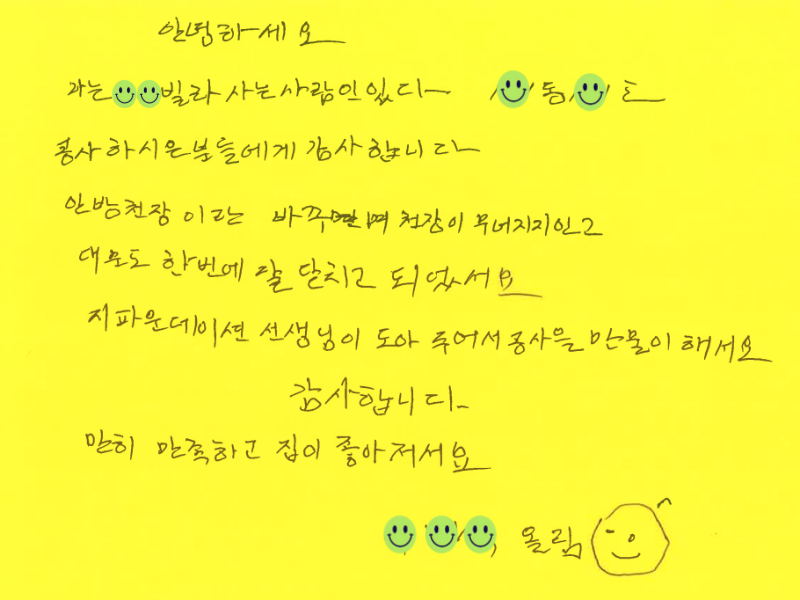 안녕하세요
과는 빌라 사는 사람인있다 동
봉사하시은분들에게 감사합니다
안방천장이라는 바꾸면 천장이 무너지지인고
대문도 한번에 잘 닫치고 되었서요
지파운데이션 선생님이 도아주어서 공사을 만물이 해서요
감사합니다
만히 만족하고 집이 좋아저서요
올림